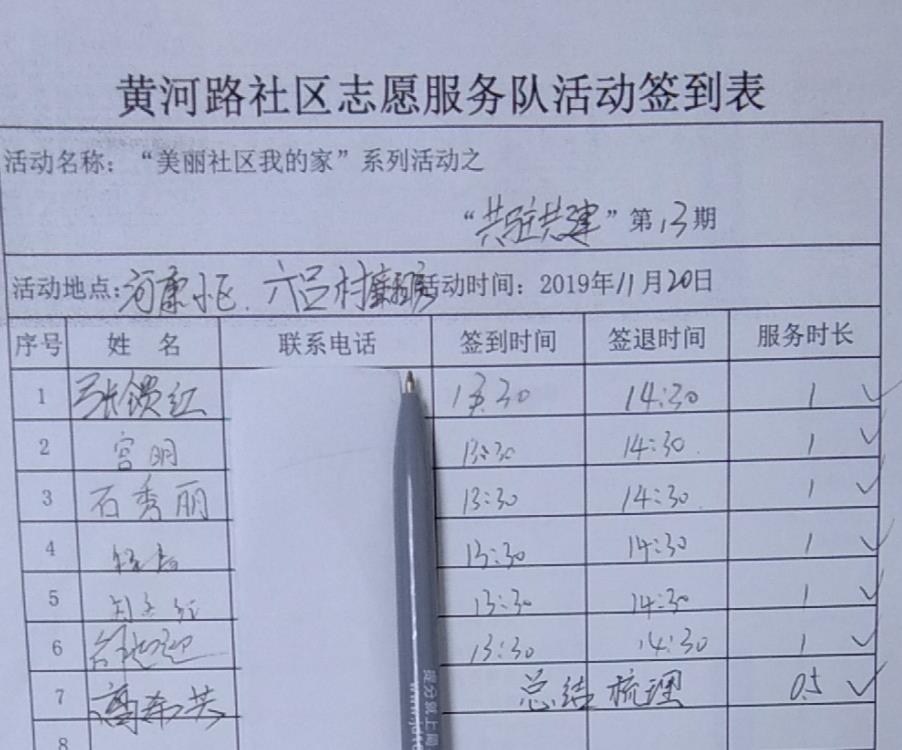 黄河路社区志愿服务队活动签到表
活动名称：“美丽社区我的家”系列活动之
“共驻共建”第13期
活动地点：河康小区、六吕村 活动时间：2019年11月20日
序号 姓 名 联系电话 签到时间 签退时间 服务时长
1 张锁红 13:30 14:30 1 ✓
2 宫明 13:30 14:30 1 ✓
3 石秀丽 13:30 14:30 1 ✓
4 13:30 14:30 1 ✓
5 13:30 14:30 1 ✓
6 13:30 14:30 1 ✓
7 总结梳理 0.5 ✓
8
提分就上网